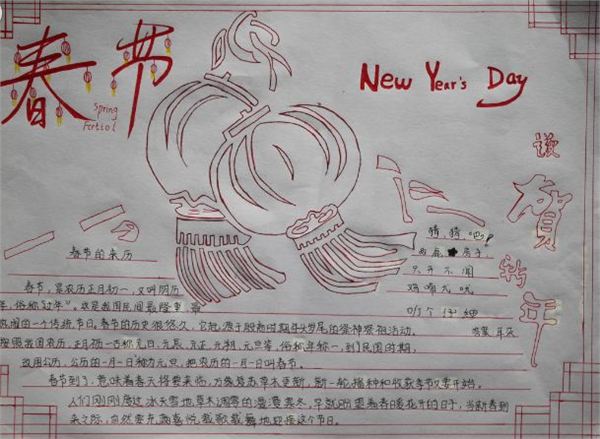 春节
Spring
Fertiol
New Year's Day
谨
贺
新
年
春节的来历
春节，是农历正月初一，又叫阴历
年，俗称"过年"。这是我国民间最隆重、最
热闹的一个传统节日。春节的历史很悠久，它起源于殷商时期年头岁尾的祭神祭祖活动。
按照我国农历，正月初一古称元日、元辰、元正、元朔、元旦等，俗称年初一，到了民国时期，
改用公历，公历的一月一日称为元旦，把农历的一月一日叫春节。
春节到了，意味着春天将要来临，万象复苏草木更新，新一轮播种和收获季节又要开始。
人们刚刚度过冰天雪地草木凋零的漫漫寒冬，早就盼望着春暖花开的日子，当新春到
来之际，自然要充满喜悦载歌载舞地迎接这个节日。
猜猜"吧"
只开不闻